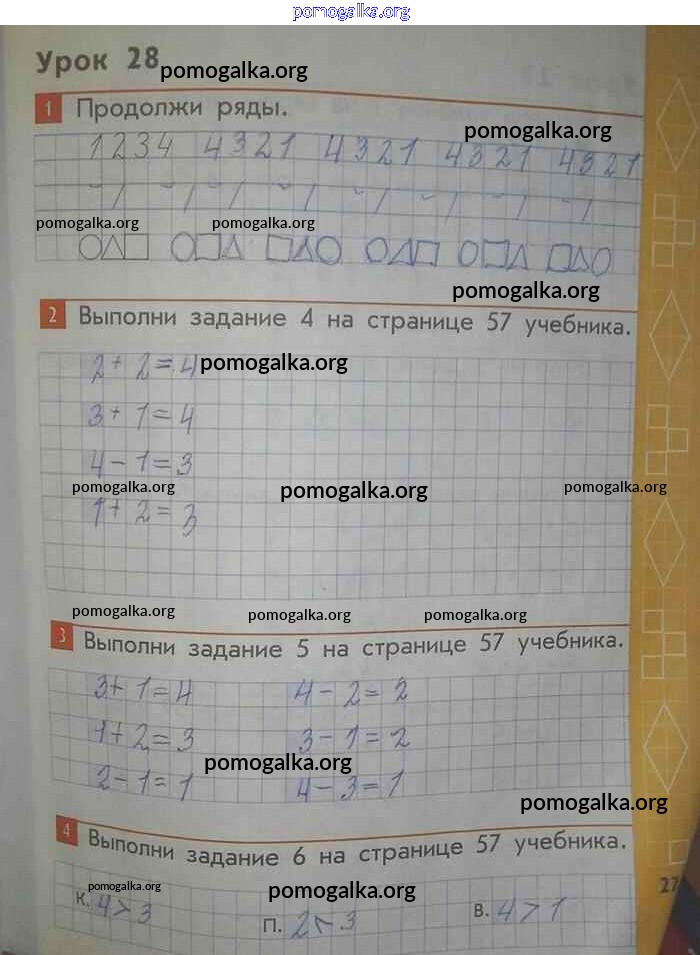 pomogalka.org
Урок 28
pomogalka.org
1 Продолжи ряды.
pomogalka.org
1 2 3 4 4 3 2 1 4 3 2 1 4 3 2 1 4 3 2 1
pomogalka.org pomogalka.org
pomogalka.org
2 Выполни задание 4 на странице 57 учебника.
2 + 2 = 4 pomogalka.org
3 + 1 = 4
4 - 1 = 3
pomogalka.org pomogalka.org pomogalka.org
1 + 2 = 3
pomogalka.org pomogalka.org pomogalka.org
3 Выполни задание 5 на странице 57 учебника.
3 + 1 = 4 4 - 2 = 2
1 + 2 = 3 3 - 1 = 2
pomogalka.org
2 - 1 = 1 4 - 3 = 1
pomogalka.org
4 Выполни задание 6 на странице 57 учебника.
pomogalka.org pomogalka.org
К. 4 > 3 П. 2 < 3 В. 4 > 1
27